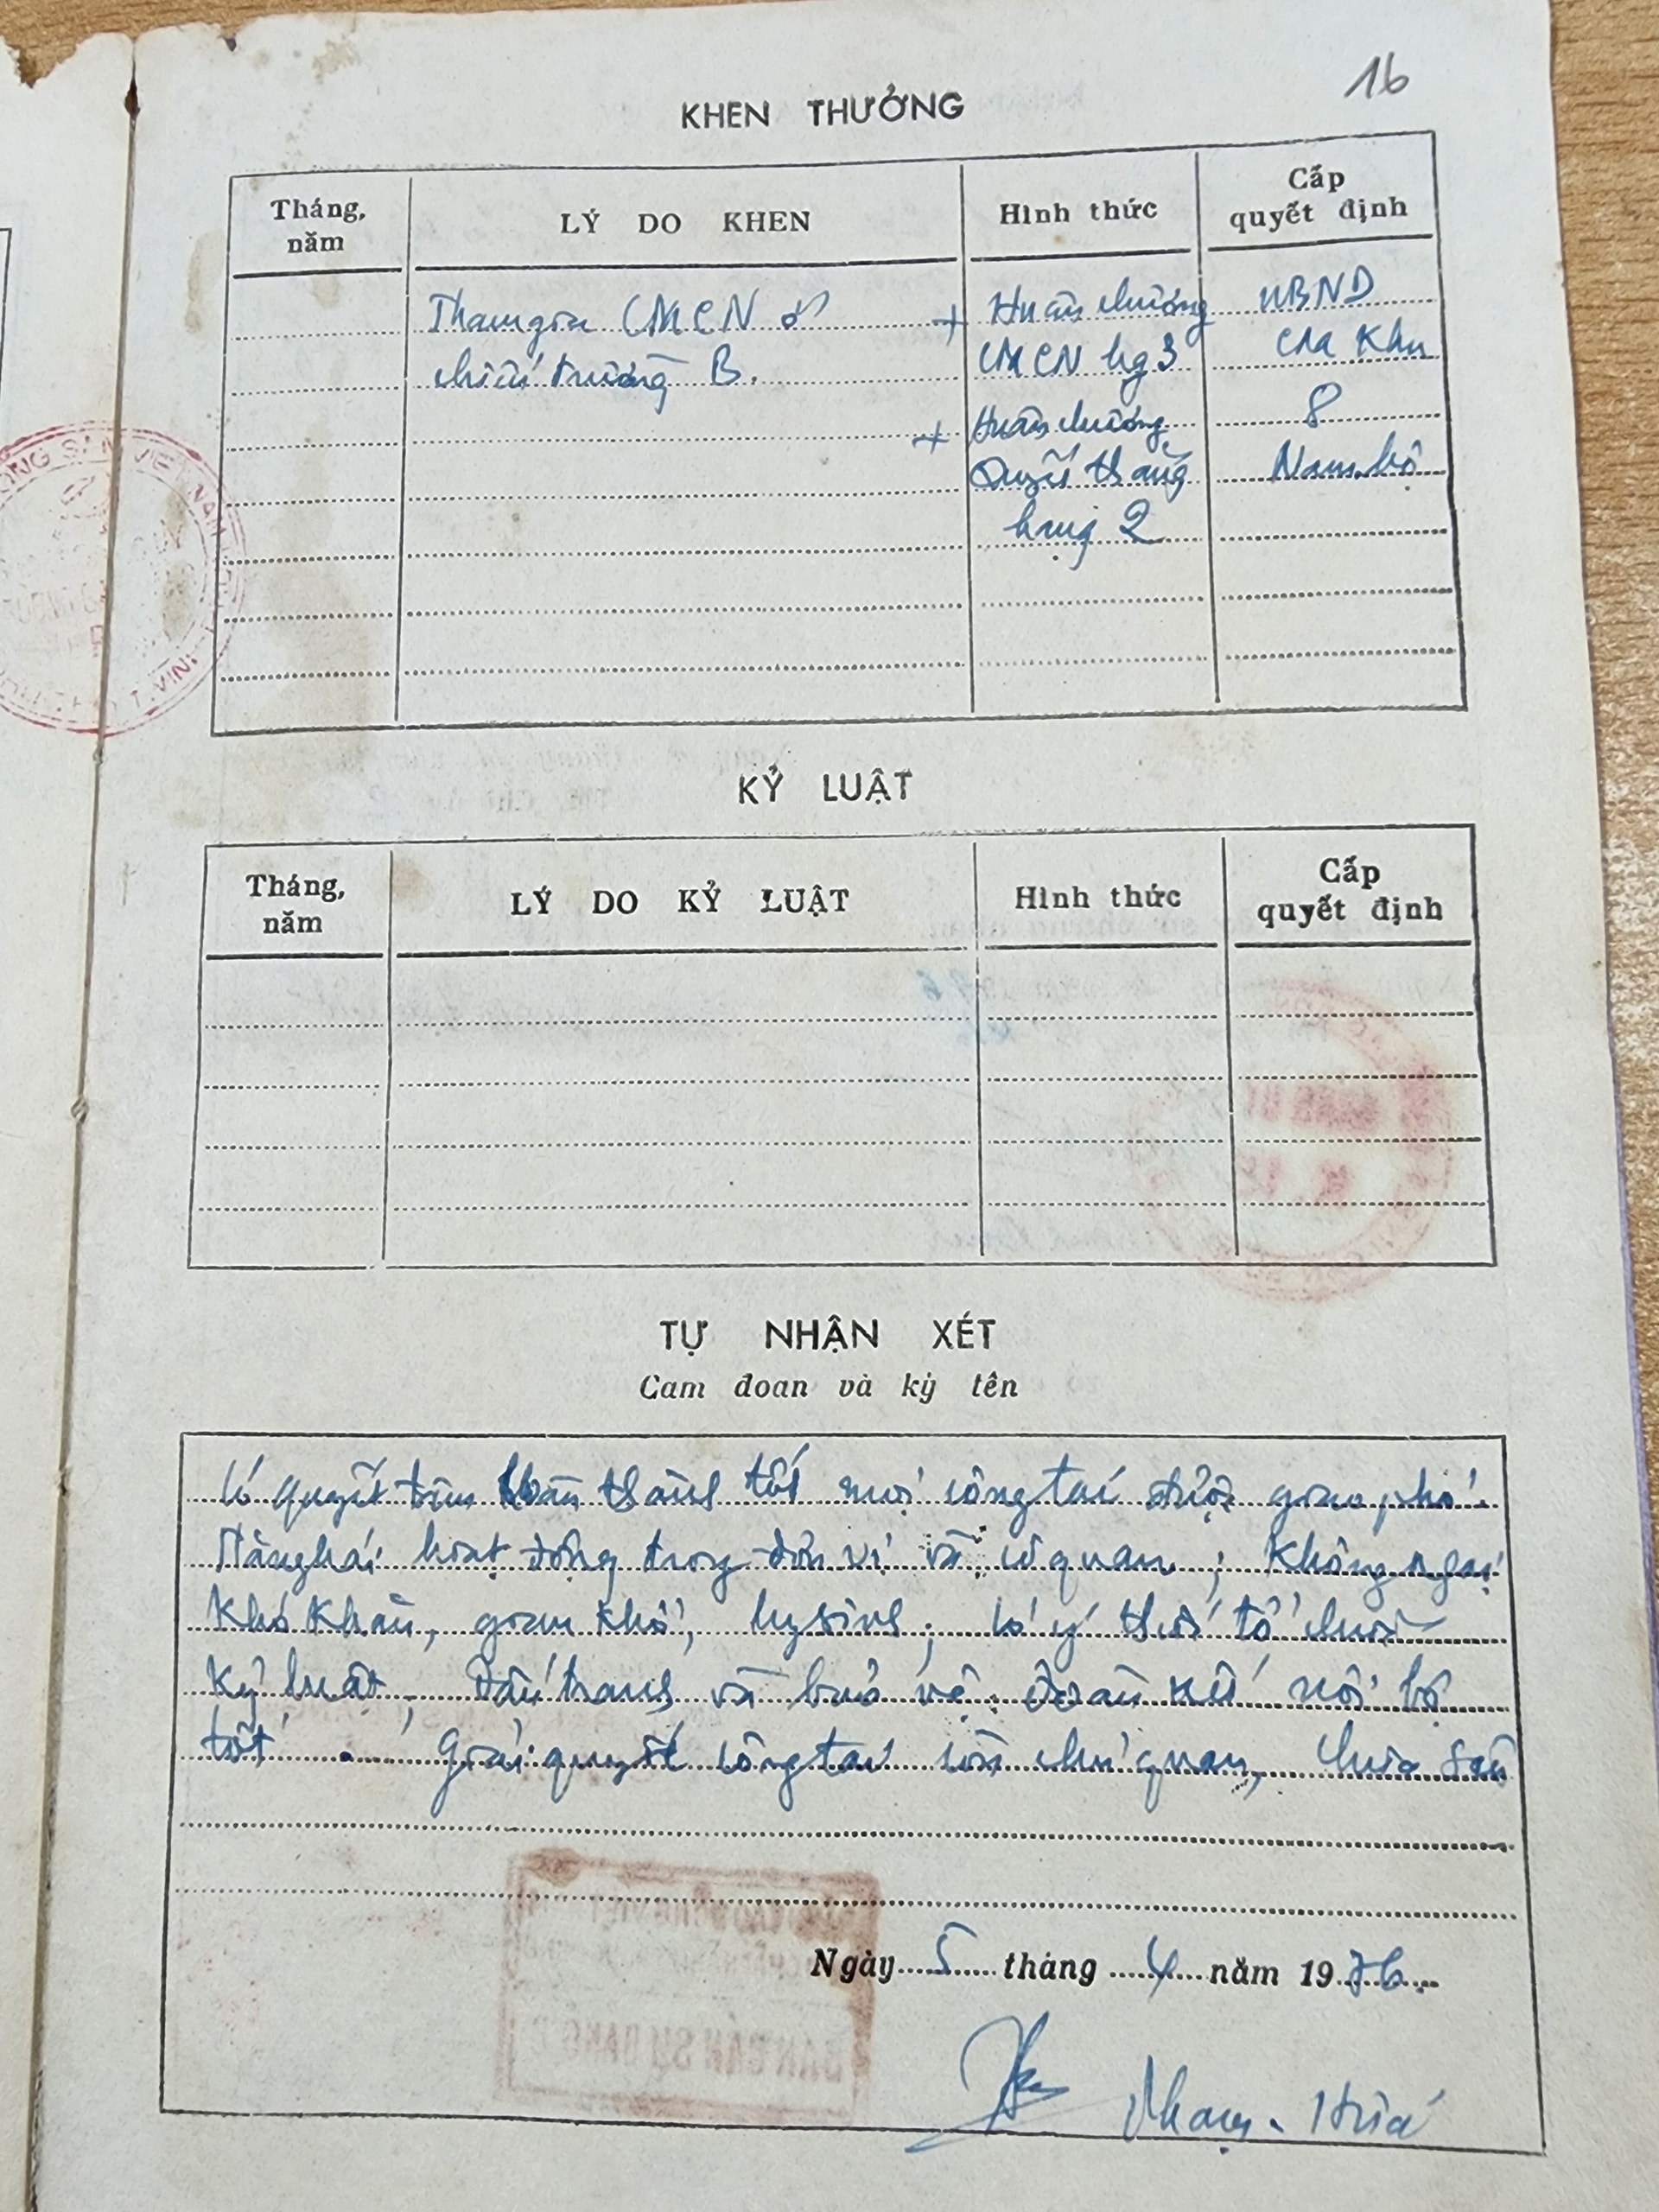 16
KHEN THƯỞNG
Tháng, năm
LÝ DO KHEN
Hình thức
Cấp quyết định
Tham gia CMCN ở
chiến trường B.
+ Huân chương
CMCN hg 3
+ Huân chương
Quyết thắng
hạng 2
UBND
CM Khu
8
Nam bộ
KỶ LUẬT
Tháng, năm
LÝ DO KỶ LUẬT
Hình thức
Cấp quyết định
TỰ NHẬN XÉT
Cam đoan và ký tên
Có quyết tâm hoàn thành tốt mọi công tác được giao phó.
Hăng hái hoạt động trong đơn vị và cơ quan; Không ngại
khó khăn, gian khổ, hy sinh; có ý thức tổ chức
kỷ luật, đấu tranh và bảo vệ đoàn kết nội bộ
tốt. Giải quyết công tác còn chủ quan, chưa sâu
Ngày 5 tháng 4 năm 1976
Phạm